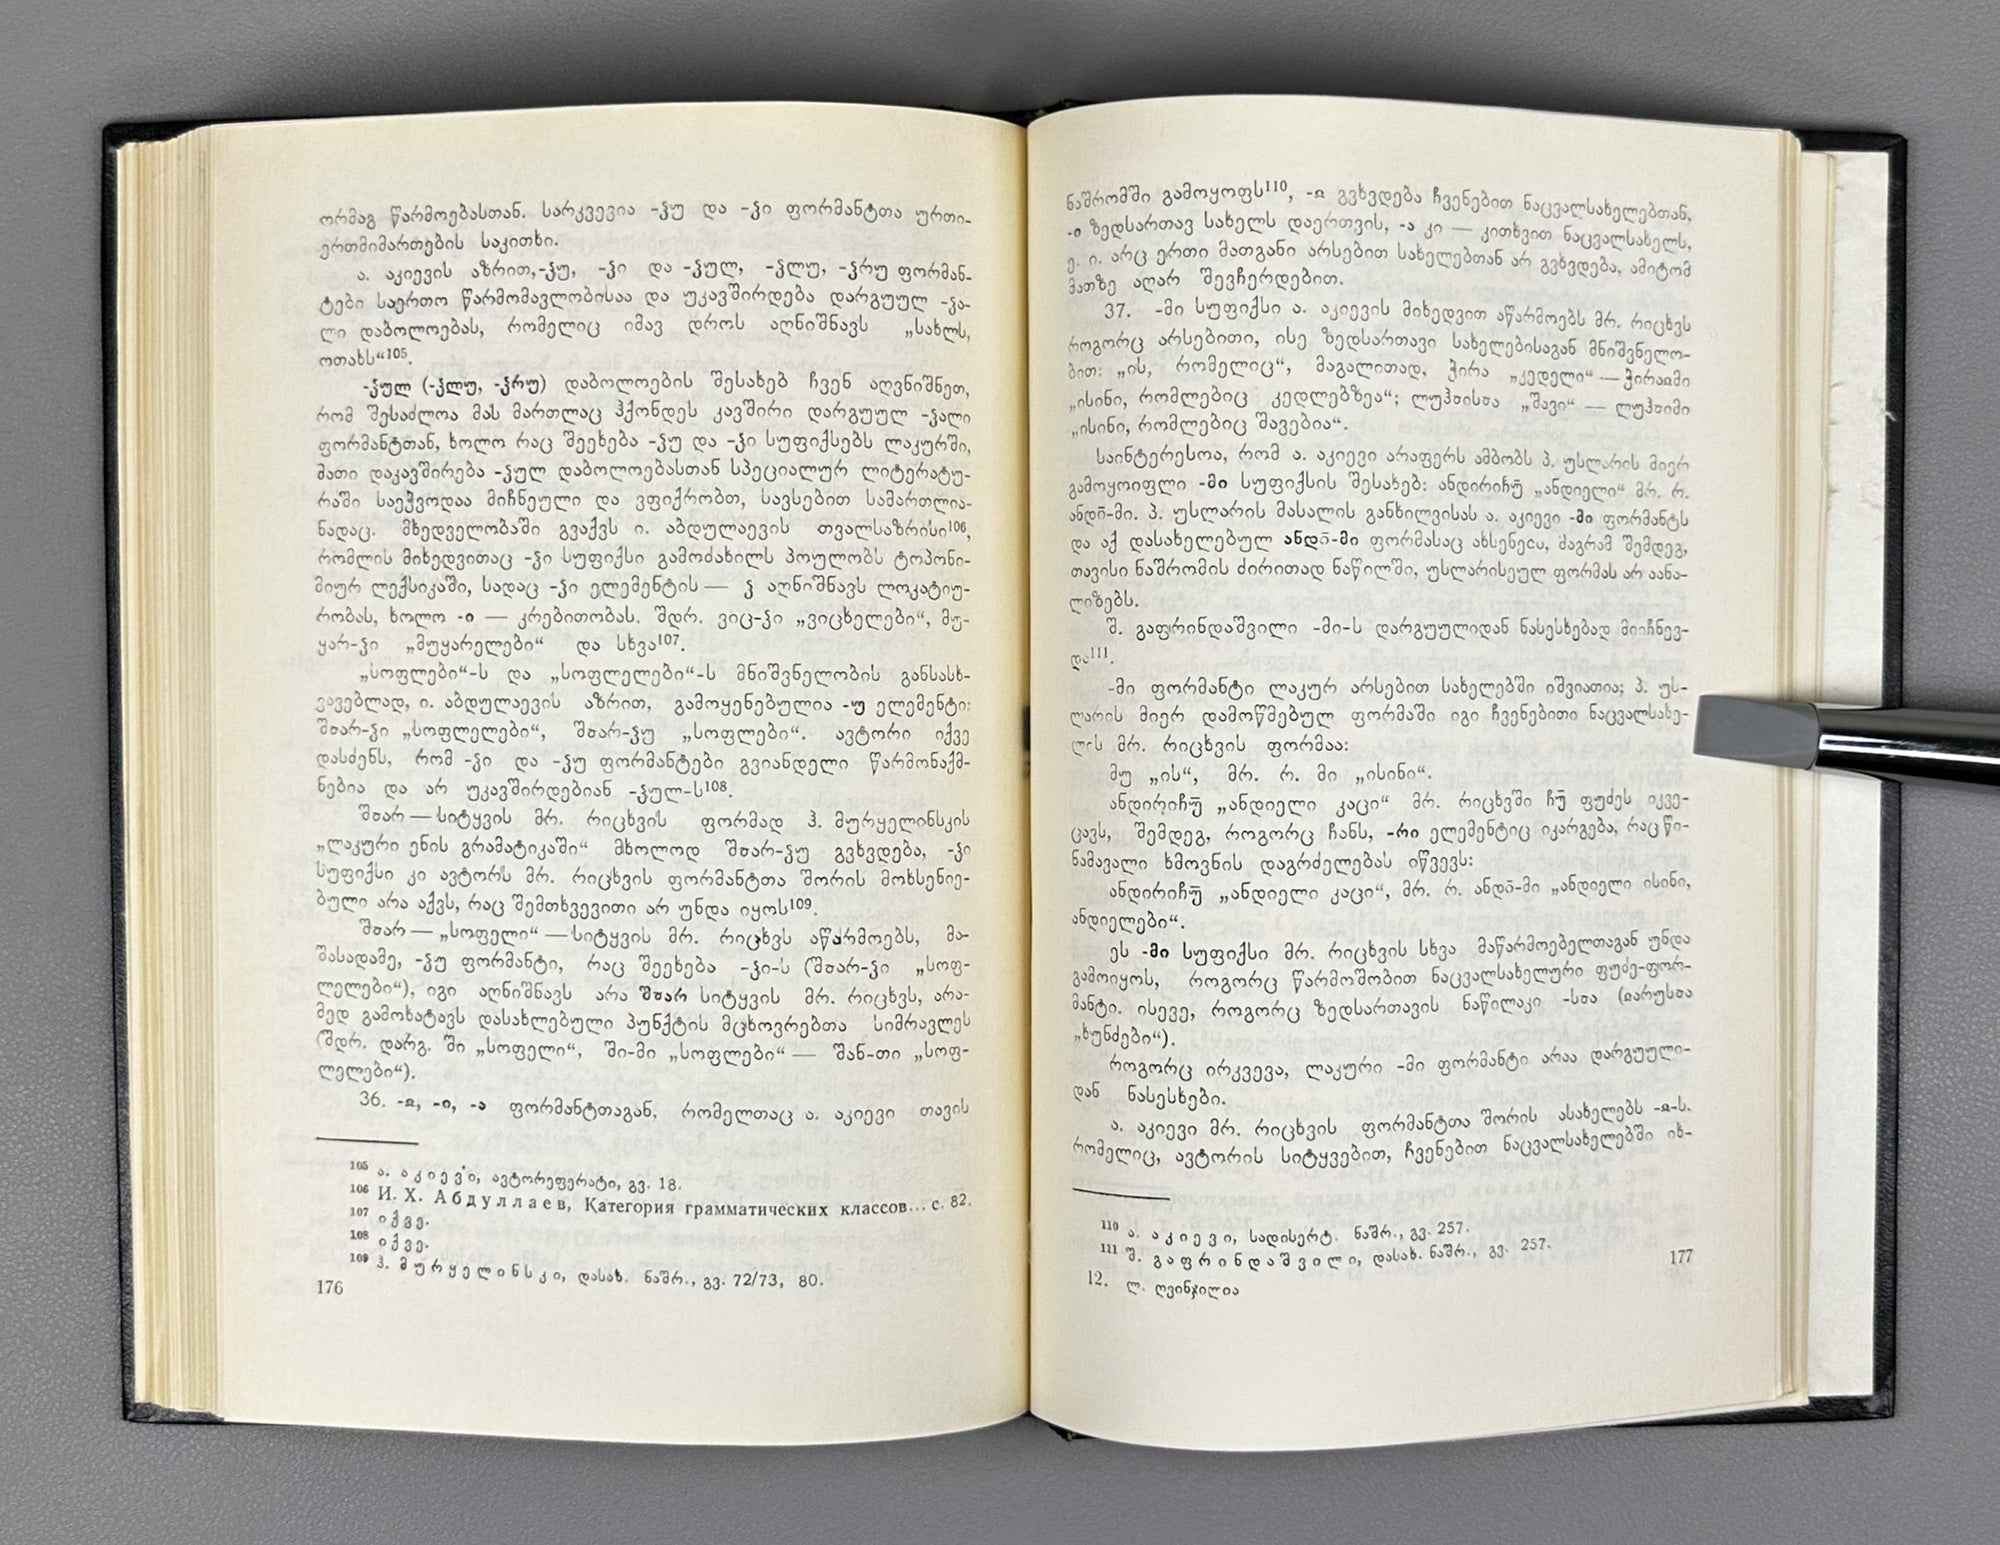 ორმაგ წარმოებასთან. სარკვევია -ჯუ და -ჯი ფორმანტთა ურთი-
ერთმიმართების საკითხი.
ა. აკიევის აზრით,-ჯუ, -ჯი და -ჯულ, -ჯლუ, -ჯრუ ფორმან-
ტები საერთო წარმომავლობისაა და უკავშირდება დარგუულ -ჯა-
ლი დაბოლოებას, რომელიც იმავ დროს აღნიშნავს „სახლს,
ოთახს“105.
-ჯულ (-ჯლუ, -ჯრუ) დაბოლოების შესახებ ჩვენ აღვნიშნეთ,
რომ შესაძლოა მას მართლაც ჰქონდეს კავშირი დარგუულ -ჯალი
ფორმანტთან, ხოლო რაც შეეხება -ჯუ და -ჯი სუფიქსებს ლაკურში,
მათი დაკავშირება -ჯულ დაბოლოებასთან სპეციალურ ლიტერატუ-
რაში საეჭვოდაა მიჩნეული და ვფიქრობთ, სავსებით სამართლია-
ნადაც. მხედველობაში გვაქვს ი. აბდულაევის თვალსაზრისი106,
რომლის მიხედვითაც -ჯი სუფიქსი გამოძახილს პოულობს ტოპონი-
მიურ ლექსიკაში, სადაც -ჯი ელემენტის — ჯ აღნიშნავს ლოკატიუ-
რობას, ხოლო -ი — კრებითობას. შდრ. ვიც-ჯი „ვიცხელები“, მუ-
ყარ-ჯი „მუყარელები“ და სხვა107.
„სოფლები“-ს და „სოფლელები“-ს მნიშვნელობის განსასხ-
ვავებლად, ი. აბდულაევის აზრით, გამოყენებულია -უ ელემენტი:
შჲარ-ჯი „სოფლელები“, შჲარ-ჯუ „სოფლები“. ავტორი იქვე
დასძენს, რომ -ჯი და -ჯუ ფორმანტები გვიანდელი წარმონაქმ-
ნებია და არ უკავშირდებიან -ჯულ-ს108.
შჲარ — სიტყვის მრ. რიცხვის ფორმად ჰ. მურყელინსკის
„ლაკური ენის გრამატიკაში“ მხოლოდ შჲარ-ჯუ გვხვდება, -ჯი
სუფიქსი კი ავტორს მრ. რიცხვის ფორმანტთა შორის მოხსენიე-
ბული არა აქვს, რაც შემთხვევითი არ უნდა იყოს109.
შჲარ — „სოფელი“ — სიტყვის მრ. რიცხვს აწარმოებს, მა-
შასადამე, -ჯუ ფორმანტი, რაც შეეხება -ჯი-ს (შჲარ-ჯი „სოფ-
ლელები“), იგი აღნიშნავს არა შჲარ სიტყვის მრ. რიცხვს, არა-
მედ გამოხატავს დასახლებული პუნქტის მცხოვრებთა სიმრავლეს
(შდრ. დარგ. ში „სოფელი“, ში-მი „სოფლები“ — შან-თი „სოფ-
ლელები“).
36. -ჲ, -ი, -ა ფორმანტთაგან, რომელთაც ა. აკიევი თავის
105 ა. აკიევი, ავტორეფერატი, გვ. 18.
106 И. Х. Абдуллаев, Категория грамматических классов... с. 82.
107 იქვე.
108 იქვე.
109 ჰ. მურყელინსკი, დასახ. ნაშრ., გვ. 72/73, 80.
176
ნაშრომში გამოყოფს110, -ჲ გვხვდება ჩვენებით ნაცვალსახელებთან,
-ი ზედსართავ სახელს დაერთვის, -ა კი — კითხვით ნაცვალსახელს,
ე. ი. არც ერთი მათგანი არსებით სახელებთან არ გვხვდება, ამიტომ
მათზე აღარ შევჩერდებით.
37. -მი სუფიქსი ა. აკიევის მიხედვით აწარმოებს მრ. რიცხვს
როგორც არსებითი, ისე ზედსართავი სახელებისაგან მნიშვნელო-
ბით: „ის, რომელიც“, მაგალითად, ჭირა „კედელი“ — ჭირაჲმი
„ისინი, რომლებიც კედლებზეა“; ლუჰჲისა „შავი“ — ლუჰჲიმი
„ისინი, რომლებიც შავებია“.
საინტერესოა, რომ ა. აკიევი არაფერს ამბობს პ. უსლარის მიერ
გამოყოიფლი -მი სუფიქსის შესახებ: ანდირიჩუ̄ „ანდიელი“ მრ. რ.
ანდო̄-მი. პ. უსლარის მასალის განხილვისას ა. აკიევი -მი ფორმანტს
და აქ დასახელებულ ანდო̄-მი ფორმასაც ახსენებს, მაგრამ შემდეგ,
თავისი ნაშრომის ძირითად ნაწილში, უსლარისეულ ფორმას არ აანა-
ლიზებს.
შ. გაფრინდაშვილი -მი-ს დარგუულიდან ნასესხებად მიიჩნევ-
და111.
-მი ფორმანტი ლაკურ არსებით სახელებში იშვიათია; პ. უს-
ლარის მიერ დამოწმებულ ფორმაში იგი ჩვენებითი ნაცვალსახე-
ლის მრ. რიცხვის ფორმაა:
მუ „ის“, მრ. რ. მი „ისინი“.
ანდირიჩუ̄ „ანდიელი კაცი“ მრ. რიცხვში ჩუ̄ ფუძეს იკვე-
ცავს, შემდეგ, როგორც ჩანს, -რი ელემენტიც იკარგება, რაც წი-
ნამავალი ხმოვნის დაგრძელებას იწვევს:
ანდირიჩუ̄ „ანდიელი კაცი“, მრ. რ. ანდო̄-მი „ანდიელი ისინი,
ანდიელები“.
ეს -მი სუფიქსი მრ. რიცხვის სხვა მაწარმოებელთაგან უნდა
გამოიყოს, როგორც წარმოშობით ნაცვალსახელური ფუძე-ფორ-
მანტი. ისევე, როგორც ზედსართავის ნაწილაკი -სსა (ჲარუსსა
„ხუნძები“).
როგორც ირკვევა, ლაკური -მი ფორმანტი არაა დარგუული-
დან ნასესხები.
ა. აკიევი მრ. რიცხვის ფორმანტთა შორის ასახელებს -ჲ-ს.
რომელიც, ავტორის სიტყვებით, ჩვენებით ნაცვალსახელებში იხ-
110 ა. აკიევი, სადისერტ. ნაშრ., გვ. 257.
111 შ. გაფრინდაშვილი, დასახ. ნაშრ., გვ. 257.
12. ლ. ღვინჯილია
177